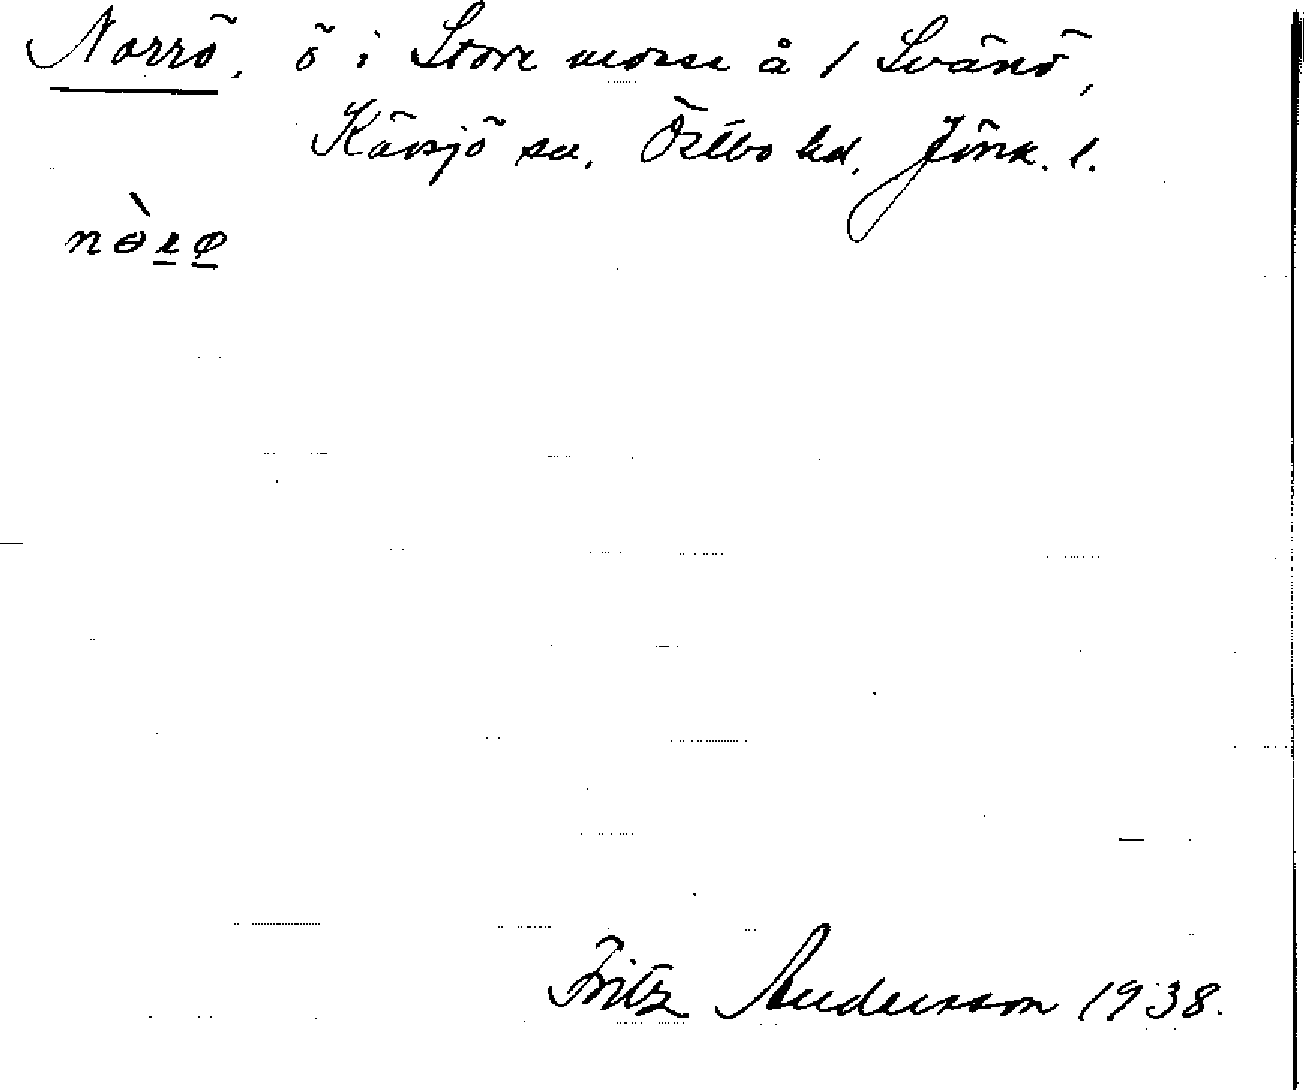 Norrö, ö i Store mosse å / Svänö,
Kävsjö sn, Östbo hd, Jönk. l.
nòrø
Fritz Andersson 1938.